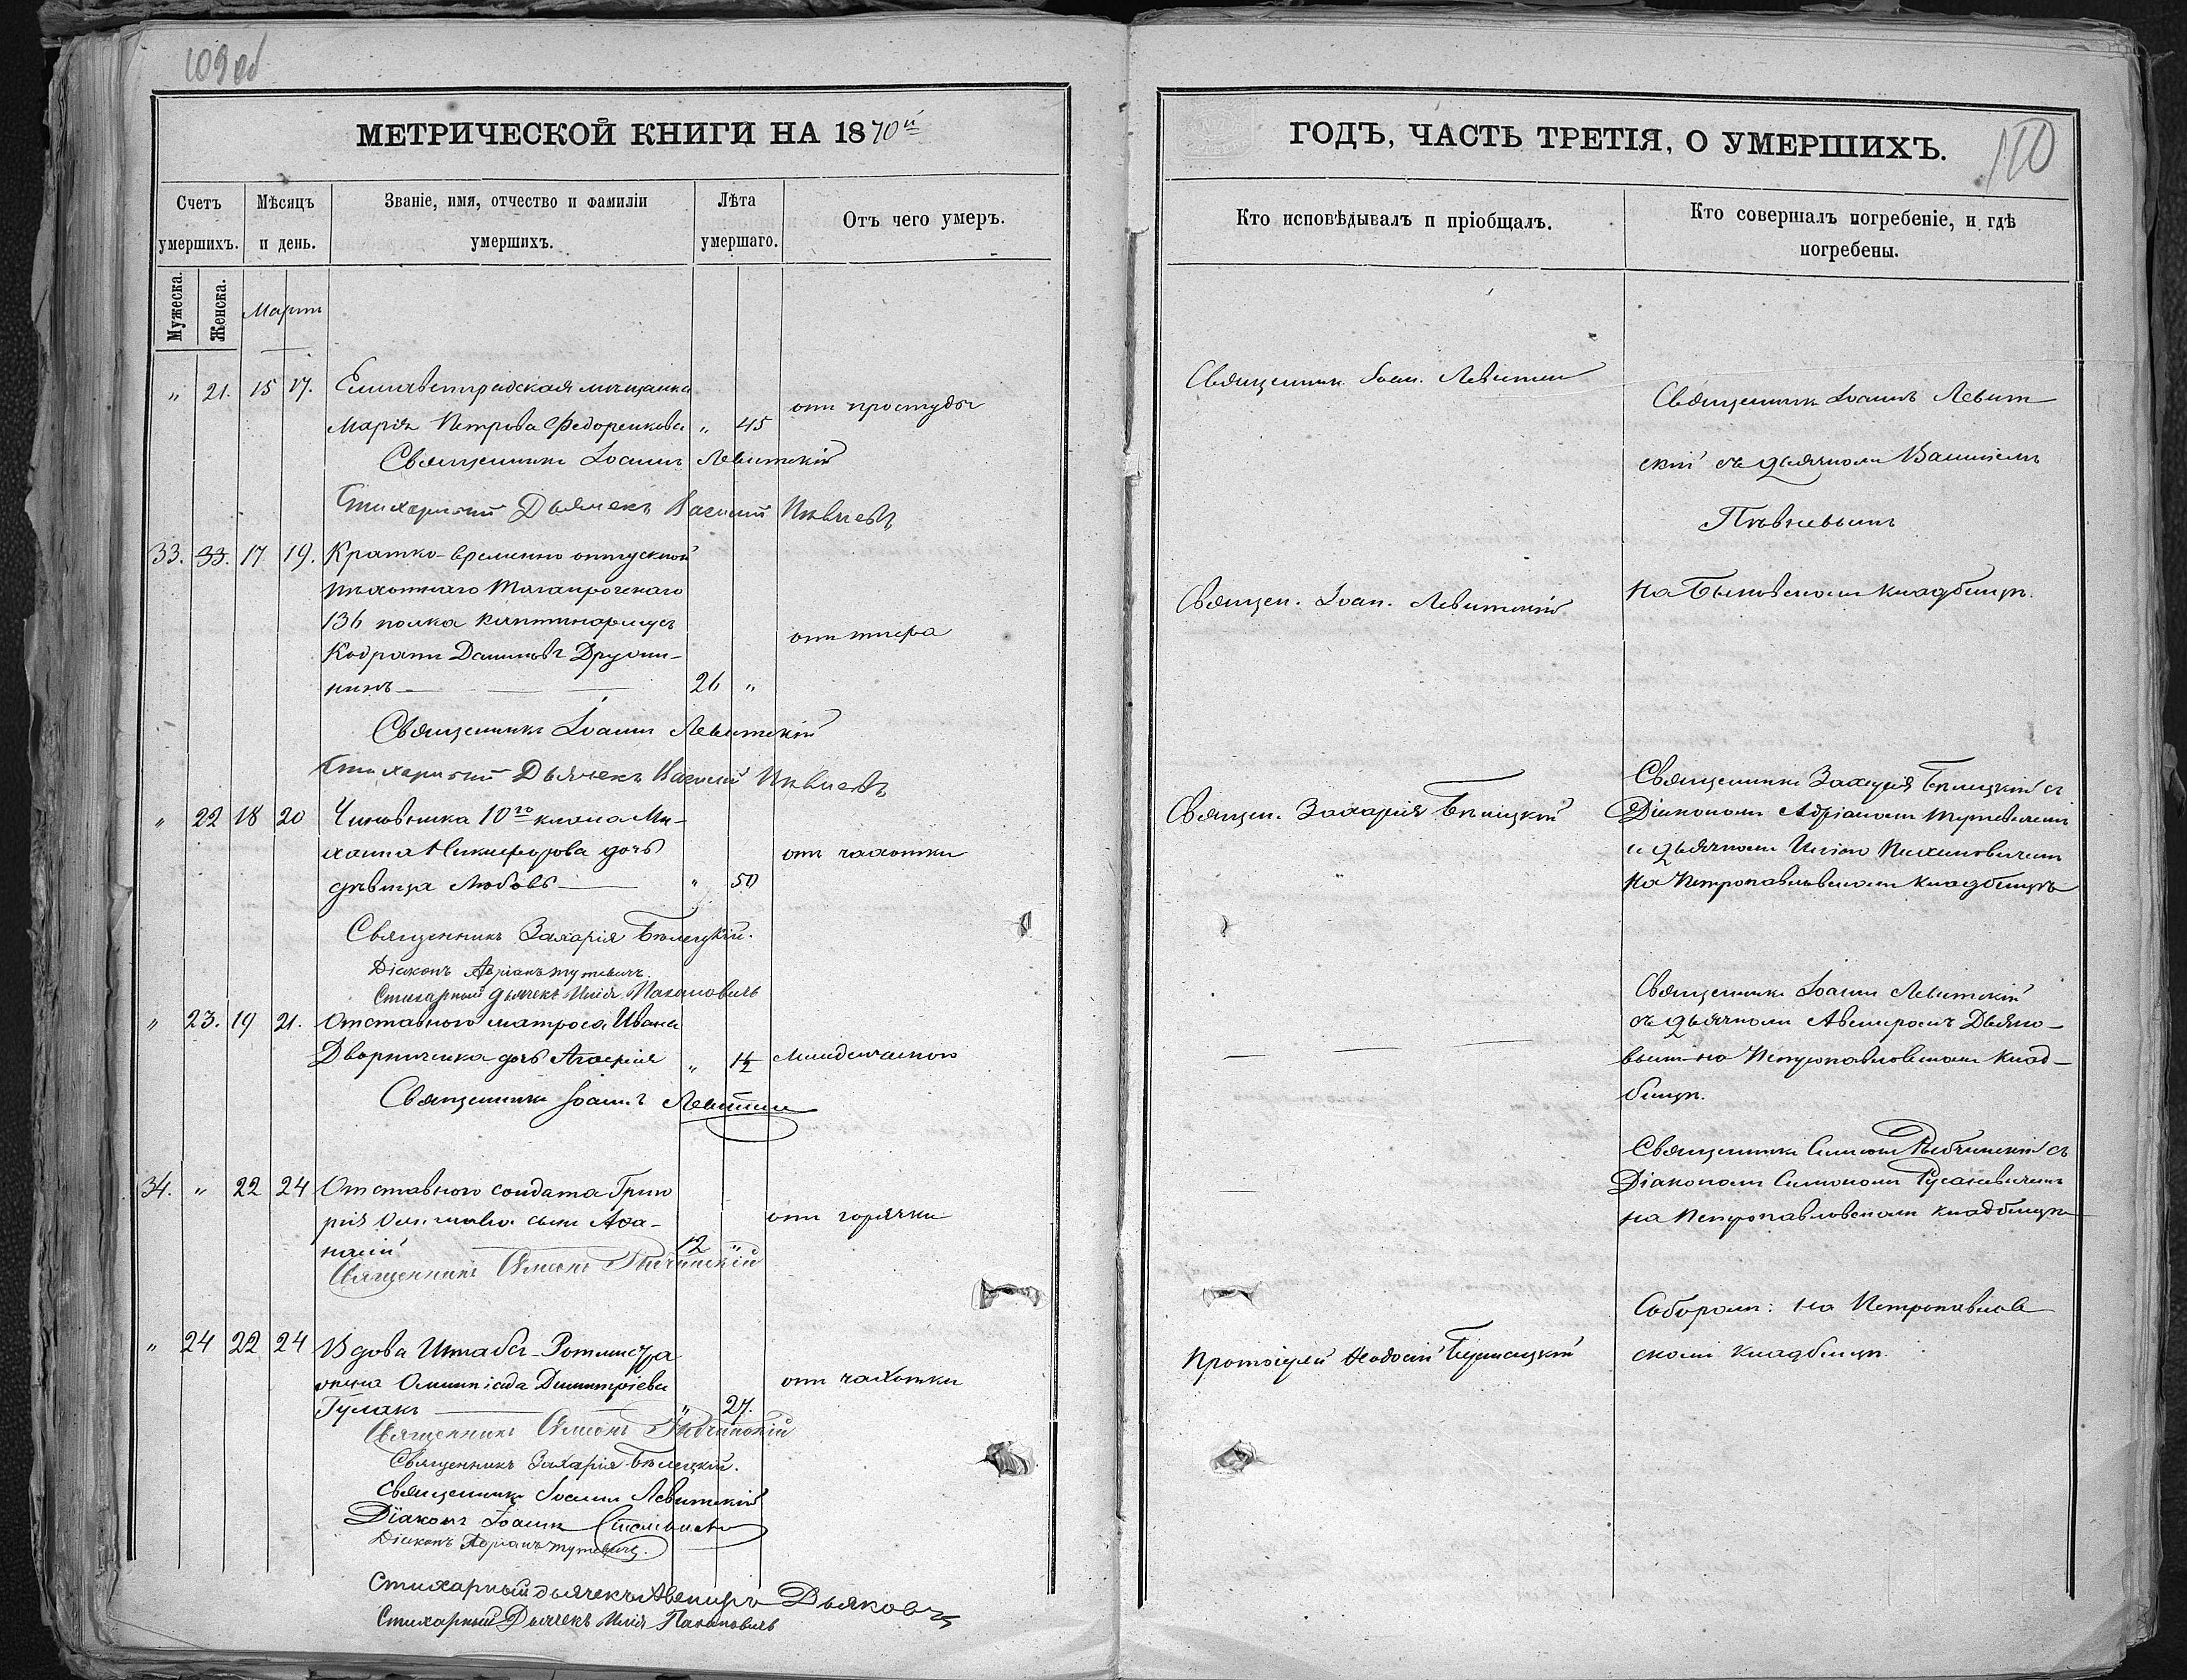 109 об
МЕТРИЧЕСКОЙ КНИГИ НА 1870й
Счетъ умершихъ.
Мужеска.
Женска.
Мѣсяцъ и день.
Званіе, имя, отчество и фамиліи умершихъ.
Лѣта умершаго.
Отъ чего умеръ.
Мартъ
" 21. 15 17. Елисаветградская мѣщанка
Марія Петрова Федоренкова " 45
отъ простуды
Священникъ Іоаннъ Левитскій
Стихарный Дьячекъ Василій Пѣвневъ
33. 33. 17 19. Кратко-временно отпускной
пѣхотнаго Таганрогскаго
136 полка каптинармусъ
Кодратъ Даниловъ Дружи-
нинъ 26 "
отъ тифа
Священникъ Іоаннъ Левитскій
Стихарный Дьячекъ Василій Пѣвневъ
" 22 18 20 Чиновника 10го класса Ми-
хаила Никифорова дочь
дѣвица Любовь " 50
отъ чахотки
Священникъ Захарія Бѣлецкій.
Діаконъ Адріанъ Тутевичъ.
Стихарный дьячекъ Илія Пахановичъ
" 23. 19 21. Отставного матроса Ивана
Дворниченка дочь "
Младенческою
Священникъ Іоаннъ Левитскій
34. " 22 24 Отставного солдата Григо
рія сынъ Аѳа-
насій 12 "
отъ горячки
Священникъ Симеонъ
" 24 22 24 Вдова Штабсъ-Ротмистра
Олимпіада Димитріева
Гулакъ " 27.
отъ чахотки
Священникъ Симеонъ
Священникъ Захарія Бѣлецкій.
Священникъ Іоаннъ Левитскій
Діаконъ Іоаннъ
Діаконъ Адріанъ Тутевичъ.
Стихарный дьячекъ Авениръ Дьяковъ
Стихарный Дьячекъ Илія Пахановичъ
ГОДЪ, ЧАСТЬ ТРЕТІЯ, О УМЕРШИХЪ.
110
Кто исповѣдывалъ и пріобщалъ.
Кто совершалъ погребеніе, и гдѣ погребены.
Священникъ Іоан. Левитскій
Священникъ Іоаннъ Левит
скій съ дьячкомъ Василіемъ
Пѣвневымъ
на Быковскомъ кладбищѣ.
Священ. Іоан. Левитскій
Священ. Захарія Бѣлецкій
Священникъ Захарія Бѣлецкій съ
Діакономъ Адріаномъ Тутевичемъ
и дьячкомъ Иліею Пахановичемъ
на Петропавловскомъ кладбищѣ
Священникъ Іоаннъ Левитскій
съ дьячкомъ Авениромъ Дьяко-
вымъ на Петропавловскомъ клад-
бищѣ.
Священникъ Симеонъ съ
Діакономъ Симономъ Русакевичемъ
на Петропавловскомъ кладбищѣ
Протоіерей Ѳеодосій
Соборомъ: на Петропавлов
скомъ кладбищѣ.